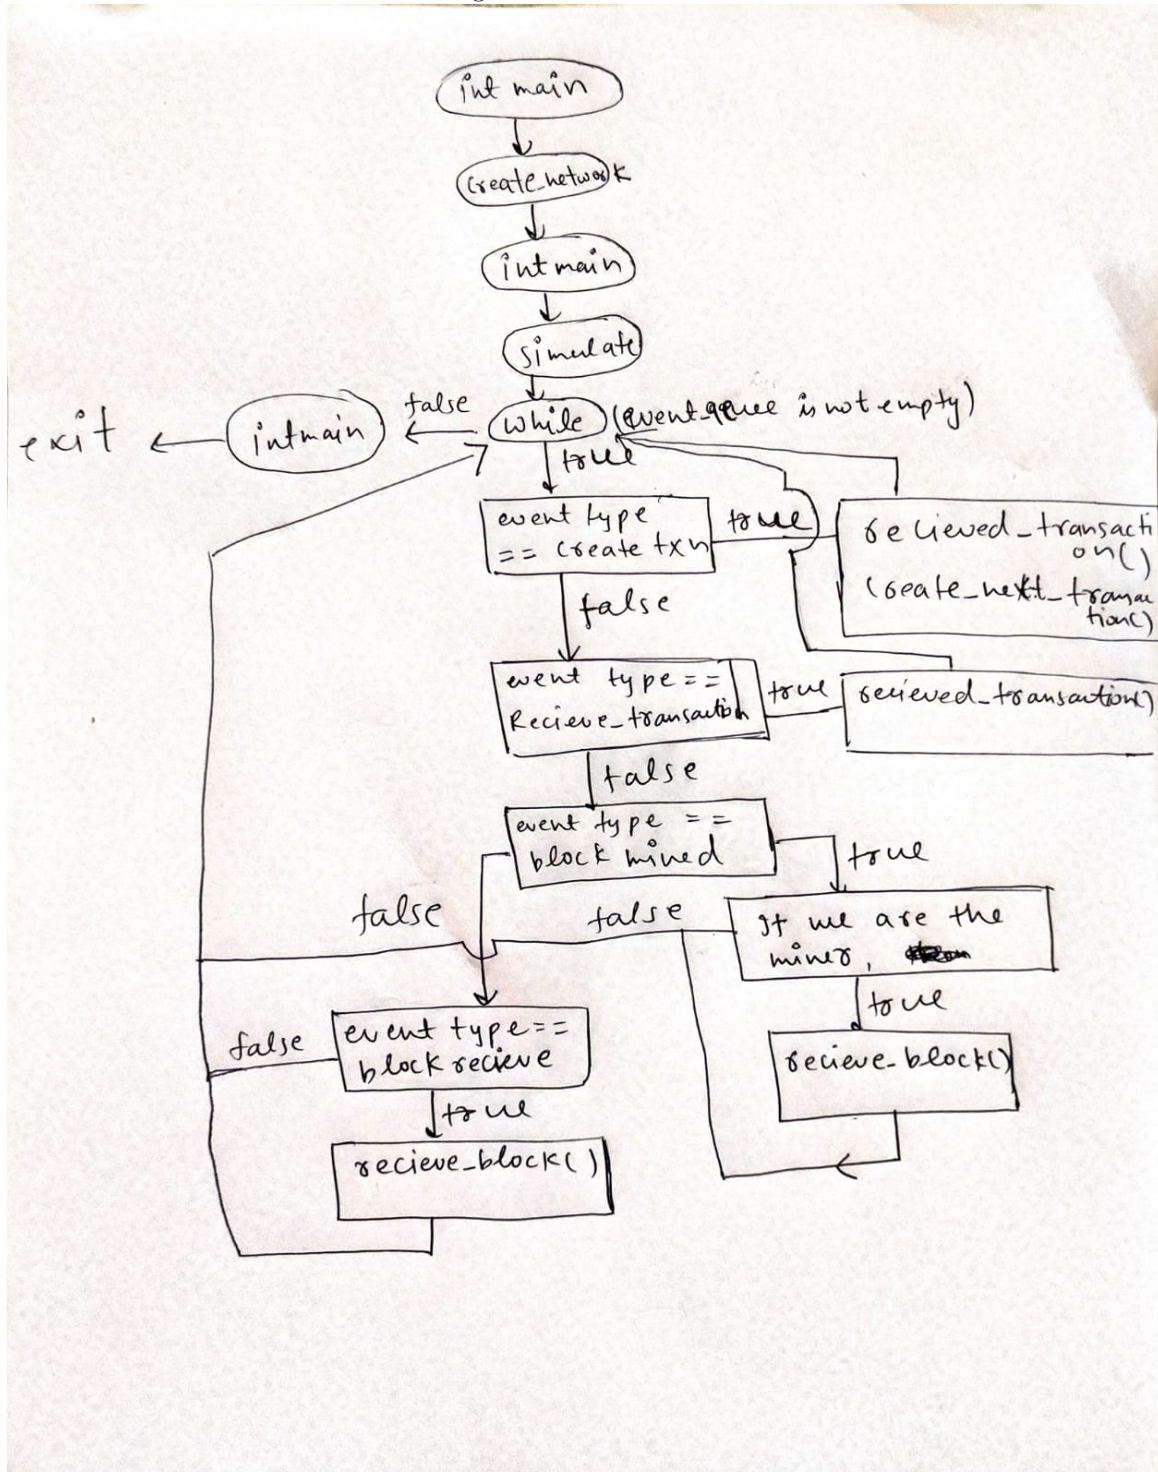 int main
create_network
int main
simulate
exit
int main
false
while (event_queue is not empty)
true
event type
== create txn
true
recieved_transacti
on()
create_next_transac
tion()
false
event type ==
Recieve_transaction
true
recieved_transaction()
false
event type ==
block mined
true
false
false
If we are the
miner,
true
false
event type ==
block recieve
recieve_block()
true
recieve_block()